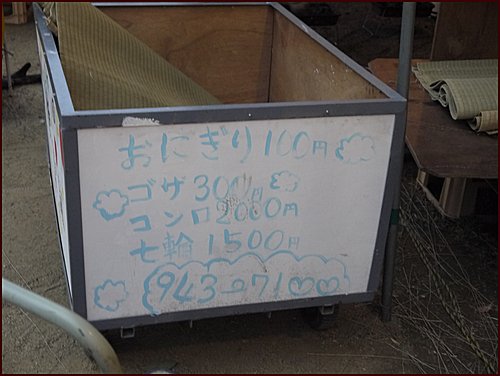 おにぎり100円
ゴザ300円
コンロ2000円
七輪1500円
943-0710